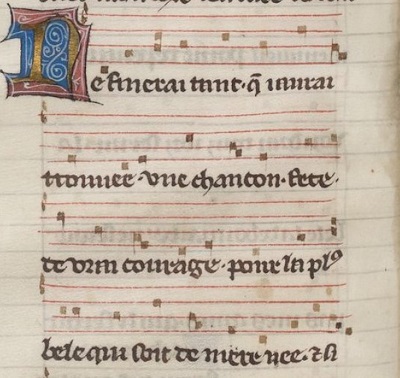 Ne finerai tant · q̃ iaurai
trouuee · vne chancon · fete ·
de vrai courage · pour la plꝰ
bele qui soit de mere nee · ⁊ si